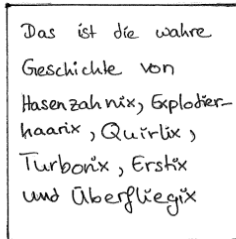 Das ist die wahre
Geschichte von
Hasenzahnix, Explodier-
haarix, Quirlix,
Turbonix, Erstix
und Überfliegix